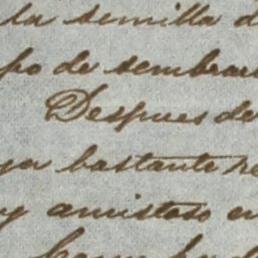 la semilla d
po de sembrar
Despues de
ya bastante
y amistoso en